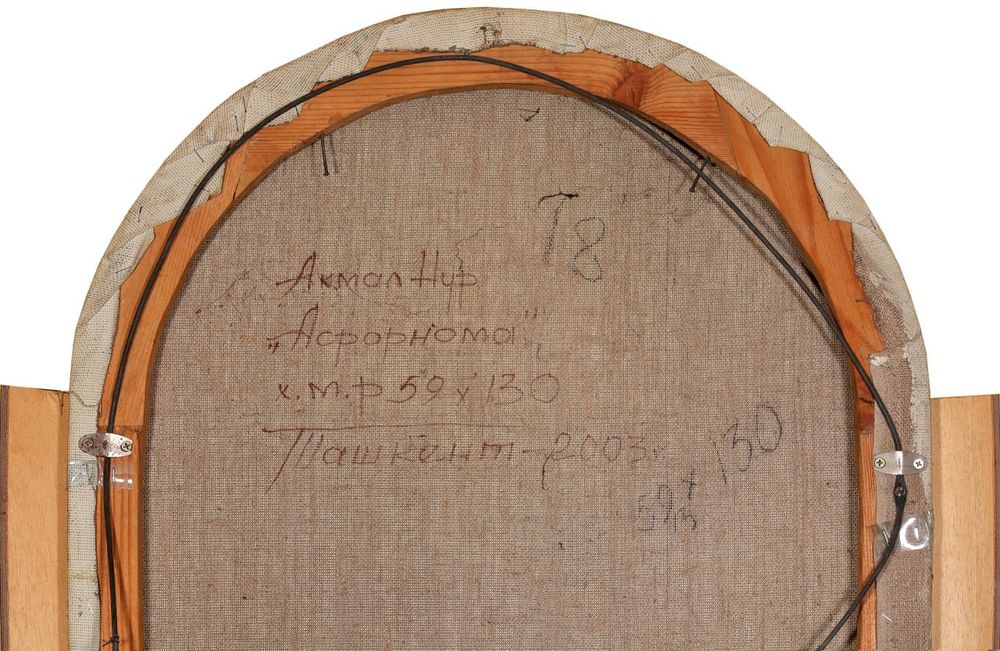 Т8
Акмал Нур
„Асрорнома"
х.м.ф 59 х 130
Ташкент-2003г
130